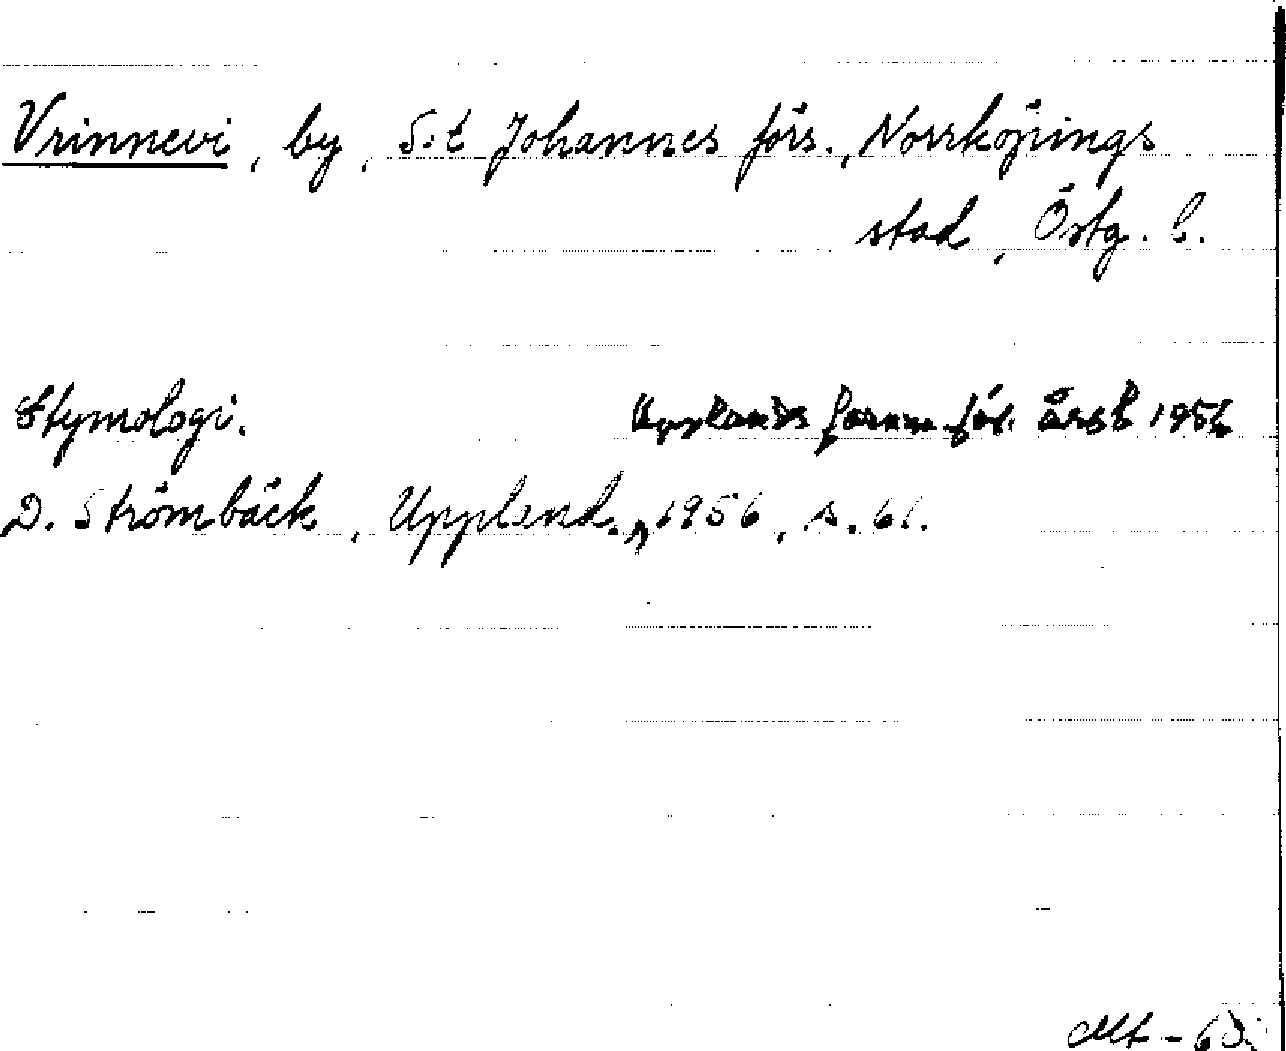 Vrinnevi, by, S:t Johannes förs., Norrköpings
stad, Östg. l.
Etymologi.
Upplands fornm. för. årsb 1956
D. Strömbäck, Uppland, 1956, s. 61.